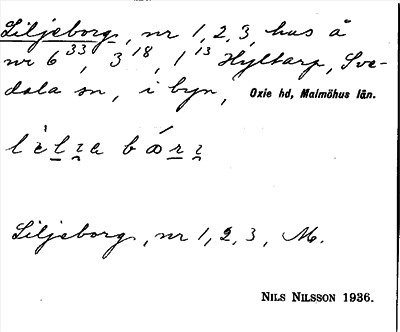 Liljeborg, nr 1, 2, 3, hus å
nr 6³³, 3¹⁸, 1¹³ Hyltarp, Sve-
dala sn, i byn, Oxie hd, Malmöhus län.
Liljeborg, nr 1, 2, 3, M.
NILS NILSSON 1936.